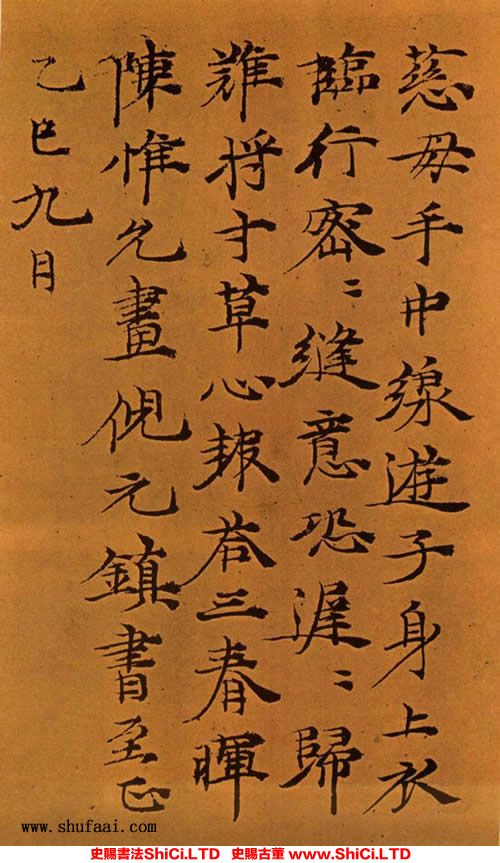 慈母手中線遊子身上衣
臨行密〻縫意恐遲〻歸
難將寸草心報荅三春暉
陳惟允畫倪元鎮書至正
乙巳九月
www.shufaai.com
史賜書法ShiCi.LTD 史賜古董 www.ShiCi.LTD